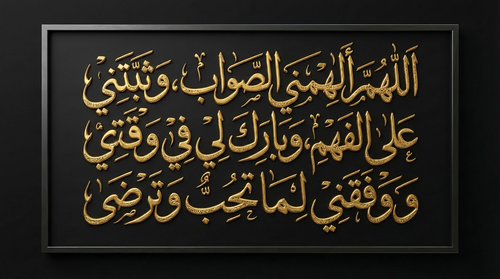 اَللّٰهُمَّ أَلْهِمْنِي الصَّوَابَ، وَثَبِّتْنِي
عَلَى الْفَهْمِ، وَبَارِكْ لِي فِي وَقْتِي
وَوَفِّقْنِي لِمَا تُحِبُّ وَتَرْضَى